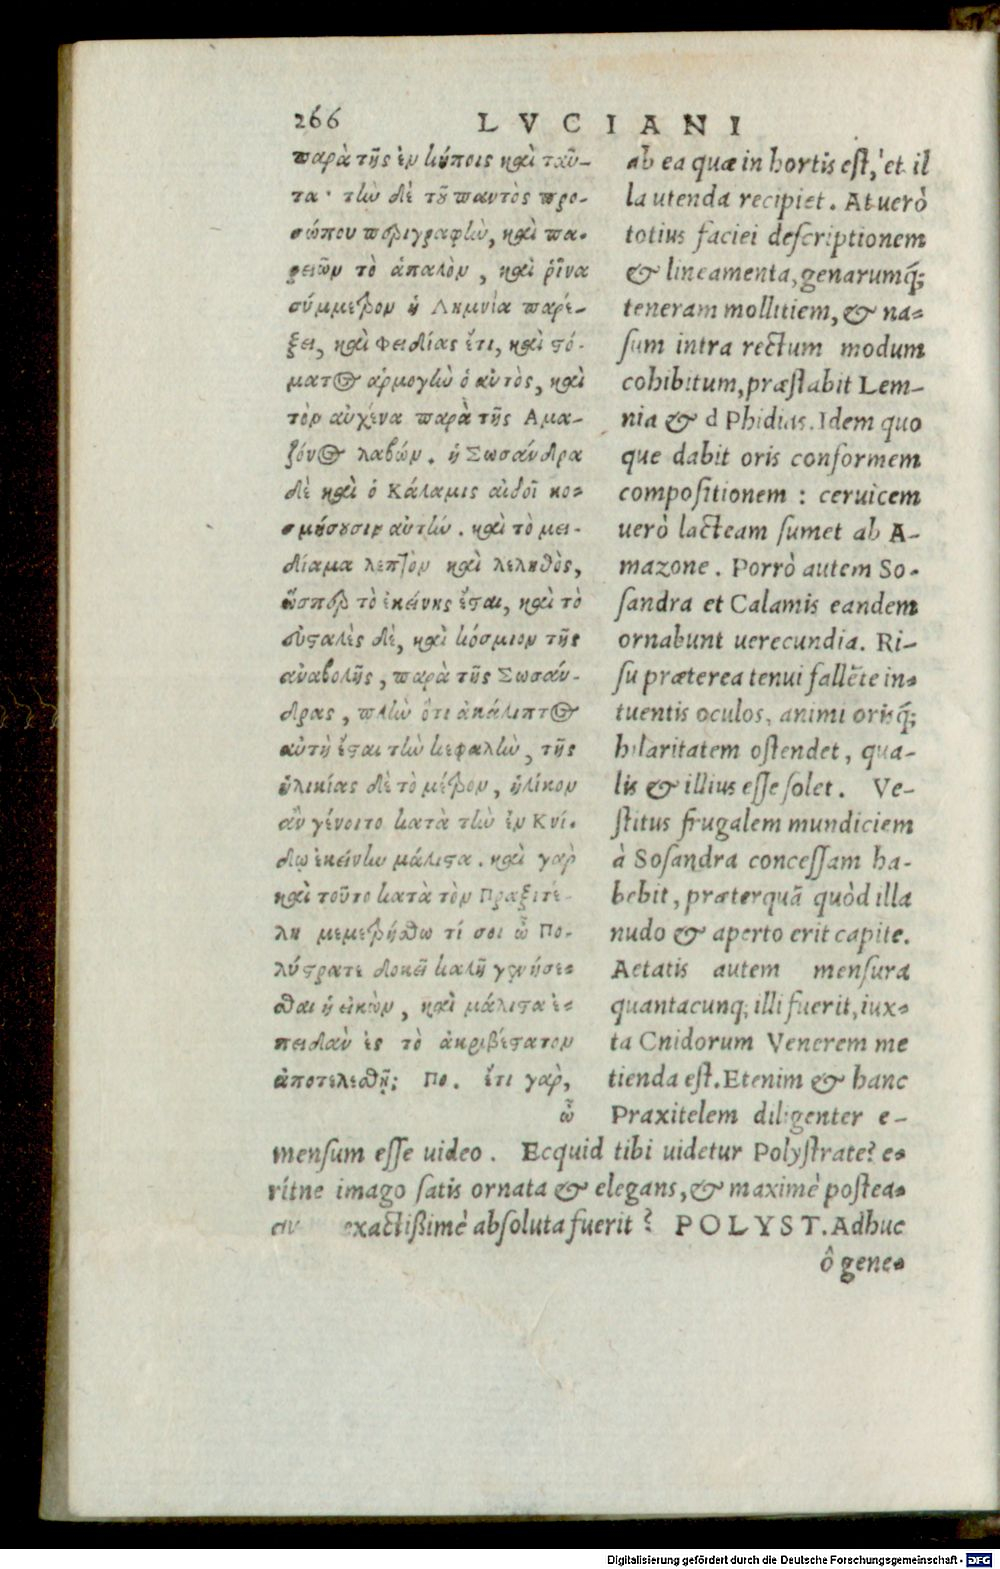 266 LVCIANI
παρὰ τῆς ἐν κήποις καὶ ταῦ-
τα· τὴν δὲ τοῦ παντὸς προ-
σώπου περιγραφὴν, καὶ πα-
ρειῶν τὸ ἁπαλὸν, καὶ ῥῖνα
σύμμετρον ἡ Λημνία παρέ-
ξει, καὶ Φειδίας ἔτι, καὶ στό-
ματος ἁρμογὴν ὁ αὐτὸς, καὶ
τὸν αὐχένα παρὰ τῆς Αμα-
ζόνος λαβών. ἡ Σωσάνδρα
δὲ καὶ ὁ Κάλαμις αἰδοῖ κο-
σμήσουσιν αὐτήν. καὶ τὸ μει-
δίαμα λεπτὸν καὶ λεληθὸς,
ὥσπερ τὸ ἐκείνης ἔσται, καὶ τὸ
εὐσταλὲς δὲ, καὶ κόσμιον τῆς
ἀναβολῆς, παρὰ τῆς Σωσάν-
δρας, πλὴν ὅτι ἀκάλιπτος
αὐτὴ ἔσται τὴν κεφαλὴν, τῆς
ἡλικίας δὲ τὸ μέτρον, ἡλίκον
ἂν γένοιτο κατὰ τὴν ἐν Κνί-
δῳ ἐκείνην μάλιστα. καὶ γὰρ
καὶ τοῦτο κατὰ τὸν Πραξιτέ-
λη μεμετρήσθω τί σοι ὦ Πο-
λύστρατε δοκεῖ καλὴ γενήσε-
σθαι ἡ εἰκὼν, καὶ μάλιστα ἐ-
πειδὰν ἐς τὸ ἀκριβέστατον
ἀποτελεσθῇ; Πο. ἔτι γὰρ,
ὦ
ab ea quæ in hortis est, et il
la utenda recipiet. At uerò
totius faciei descriptionem
& lineamenta, genarumq́;
teneram mollitiem, & na-
sum intra rectum modum
cohibitum, præstabit Lem-
nia & d Phidias. Idem quo
que dabit oris conformem
compositionem : ceruicem
uerò lacteam sumet ab A-
mazone. Porrò autem So-
sandra et Calamis eandem
ornabunt uerecundia. Ri-
su præterea tenui fallẽte in-
tuentis oculos, animi orisq́;
hilaritatem ostendet, qua-
lis & illius esse solet. Ve-
stitus frugalem mundiciem
à Sosandra concessam ha-
bebit, præterquã quòd illa
nudo & aperto erit capite.
Aetatis autem mensura
quantacunq; illi fuerit, iux-
ta Cnidorum Venerem me
tienda est. Etenim & hanc
Praxitelem diligenter e-
mensum esse uideo. Ecquid tibi uidetur Polystrate? e-
rítne imago satis ornata & elegans, & maximè postea-
exactißimè absoluta fuerit? POLYST. Adhuc
ô gene-
Digitalisierung gefördert durch die Deutsche Forschungsgemeinschaft - DFG